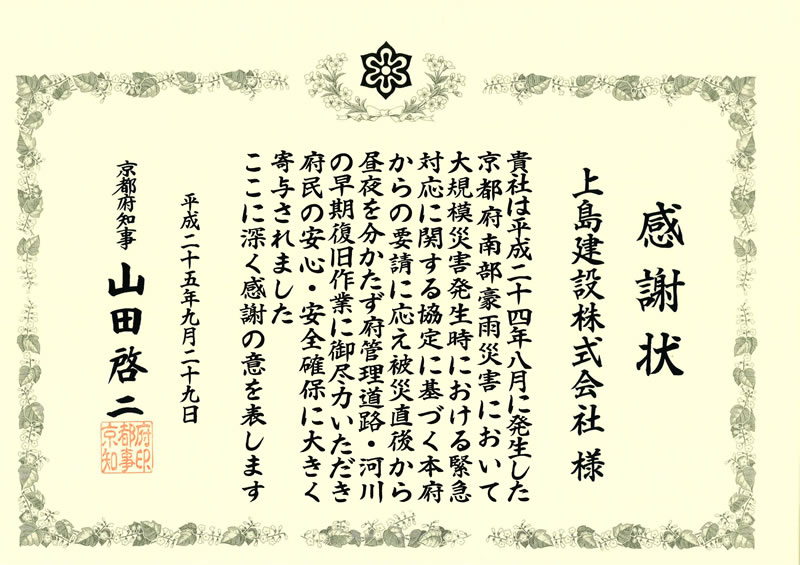 感謝状
上島建設株式会社 様
貴社は平成二十四年八月に発生した
京都府南部豪雨災害において
大規模災害発生時における緊急
対応に関する協定に基づく本府
からの要請に応え被災直後から
昼夜を分かたず府管理道路・河川
の早期復旧作業に御尽力いただき
府民の安心・安全確保に大きく
寄与されました
ここに深く感謝の意を表します
平成二十五年九月二十九日
京都府知事 山田啓二
京都府
知事印